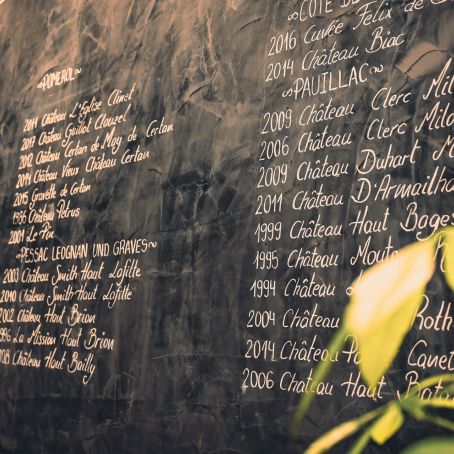 ~POMEROL~
2014 Château L'Eglise Clinet
2017 Château Guillot Clauzel
2012 Château Certan de May de Certan
2014 Château Vieux Château Certan
2015 Gravelle de Certan
1986 Château Petrus
2001 Le Pin
~PESSAC LEOGNAN UND GRAVES~
2003 Château Smith Haut Lafitte
2010 Château Smith Haut Lafitte
2002 Château Haut Brion
La Mission Haut Brion
Château Haut Bailly
~CÔTE DE
2016 Cuvée Felix de
2014 Château Biac
~PAUILLAC~
2009 Château Clerc Milo
2006 Château Clerc Milo
2009 Château Duhart M
2011 Château D'Armailha
1999 Château Haut Bages
1995 Château Mouton
1994 Château Roth
2004 Château
2014 Château Canet
2006 Château Haut Bata